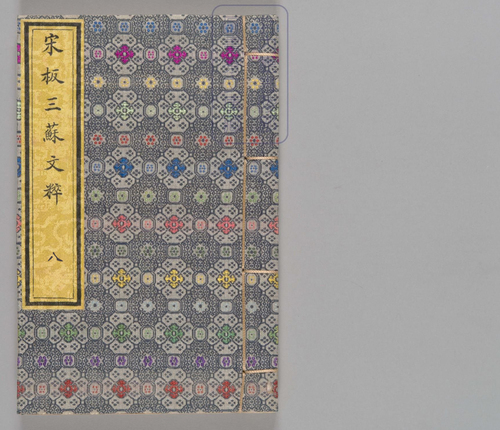 宋板三蘇文粹
八